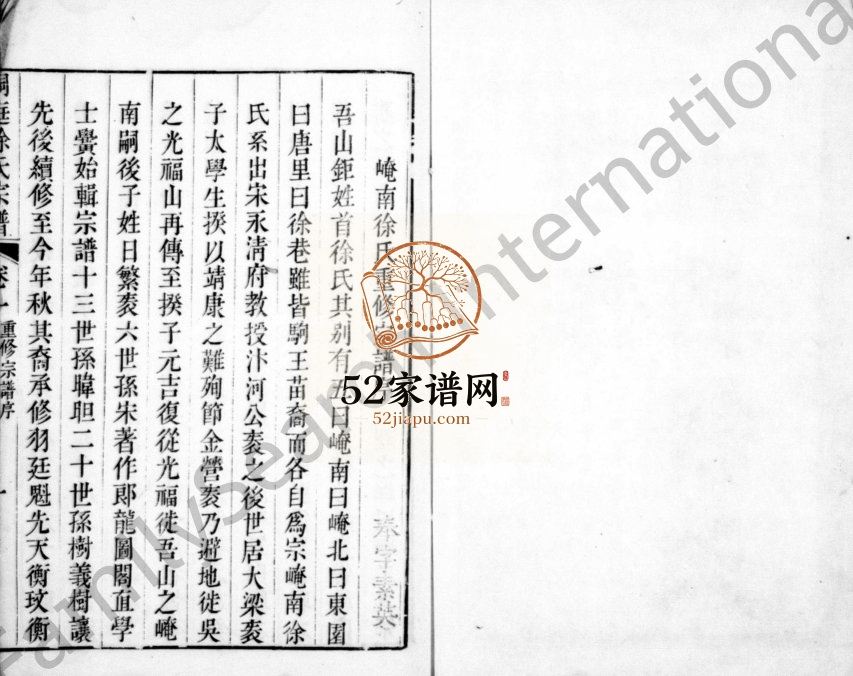 崦南徐氏重修宗譜
奉字素英
吾山鉅姓首徐氏其别有五曰崦南曰崦北曰東園
曰唐里曰徐巷雖皆駒王苗裔而各自爲宗崦南徐
氏系出宋永清府教授汴河公袤之後世居大梁袤
子太學生揆以靖康之難殉節金營袤乃避地徙吳
之光福山再傳至揆子元吉復從光福徙吾山之崦
南嗣後子姓日繁袤六世孫宋著作郎龍圖閣直學
士黌始輯宗譜十三世孫暐胆二十世孫樹義樹讓
先後續修至今年秋其裔承修羽廷魁先天衡玟衡
洞庭徐氏宗譜 卷一 重修宗譜序 一
52家谱网
52jiapu.com
FamilySearch International